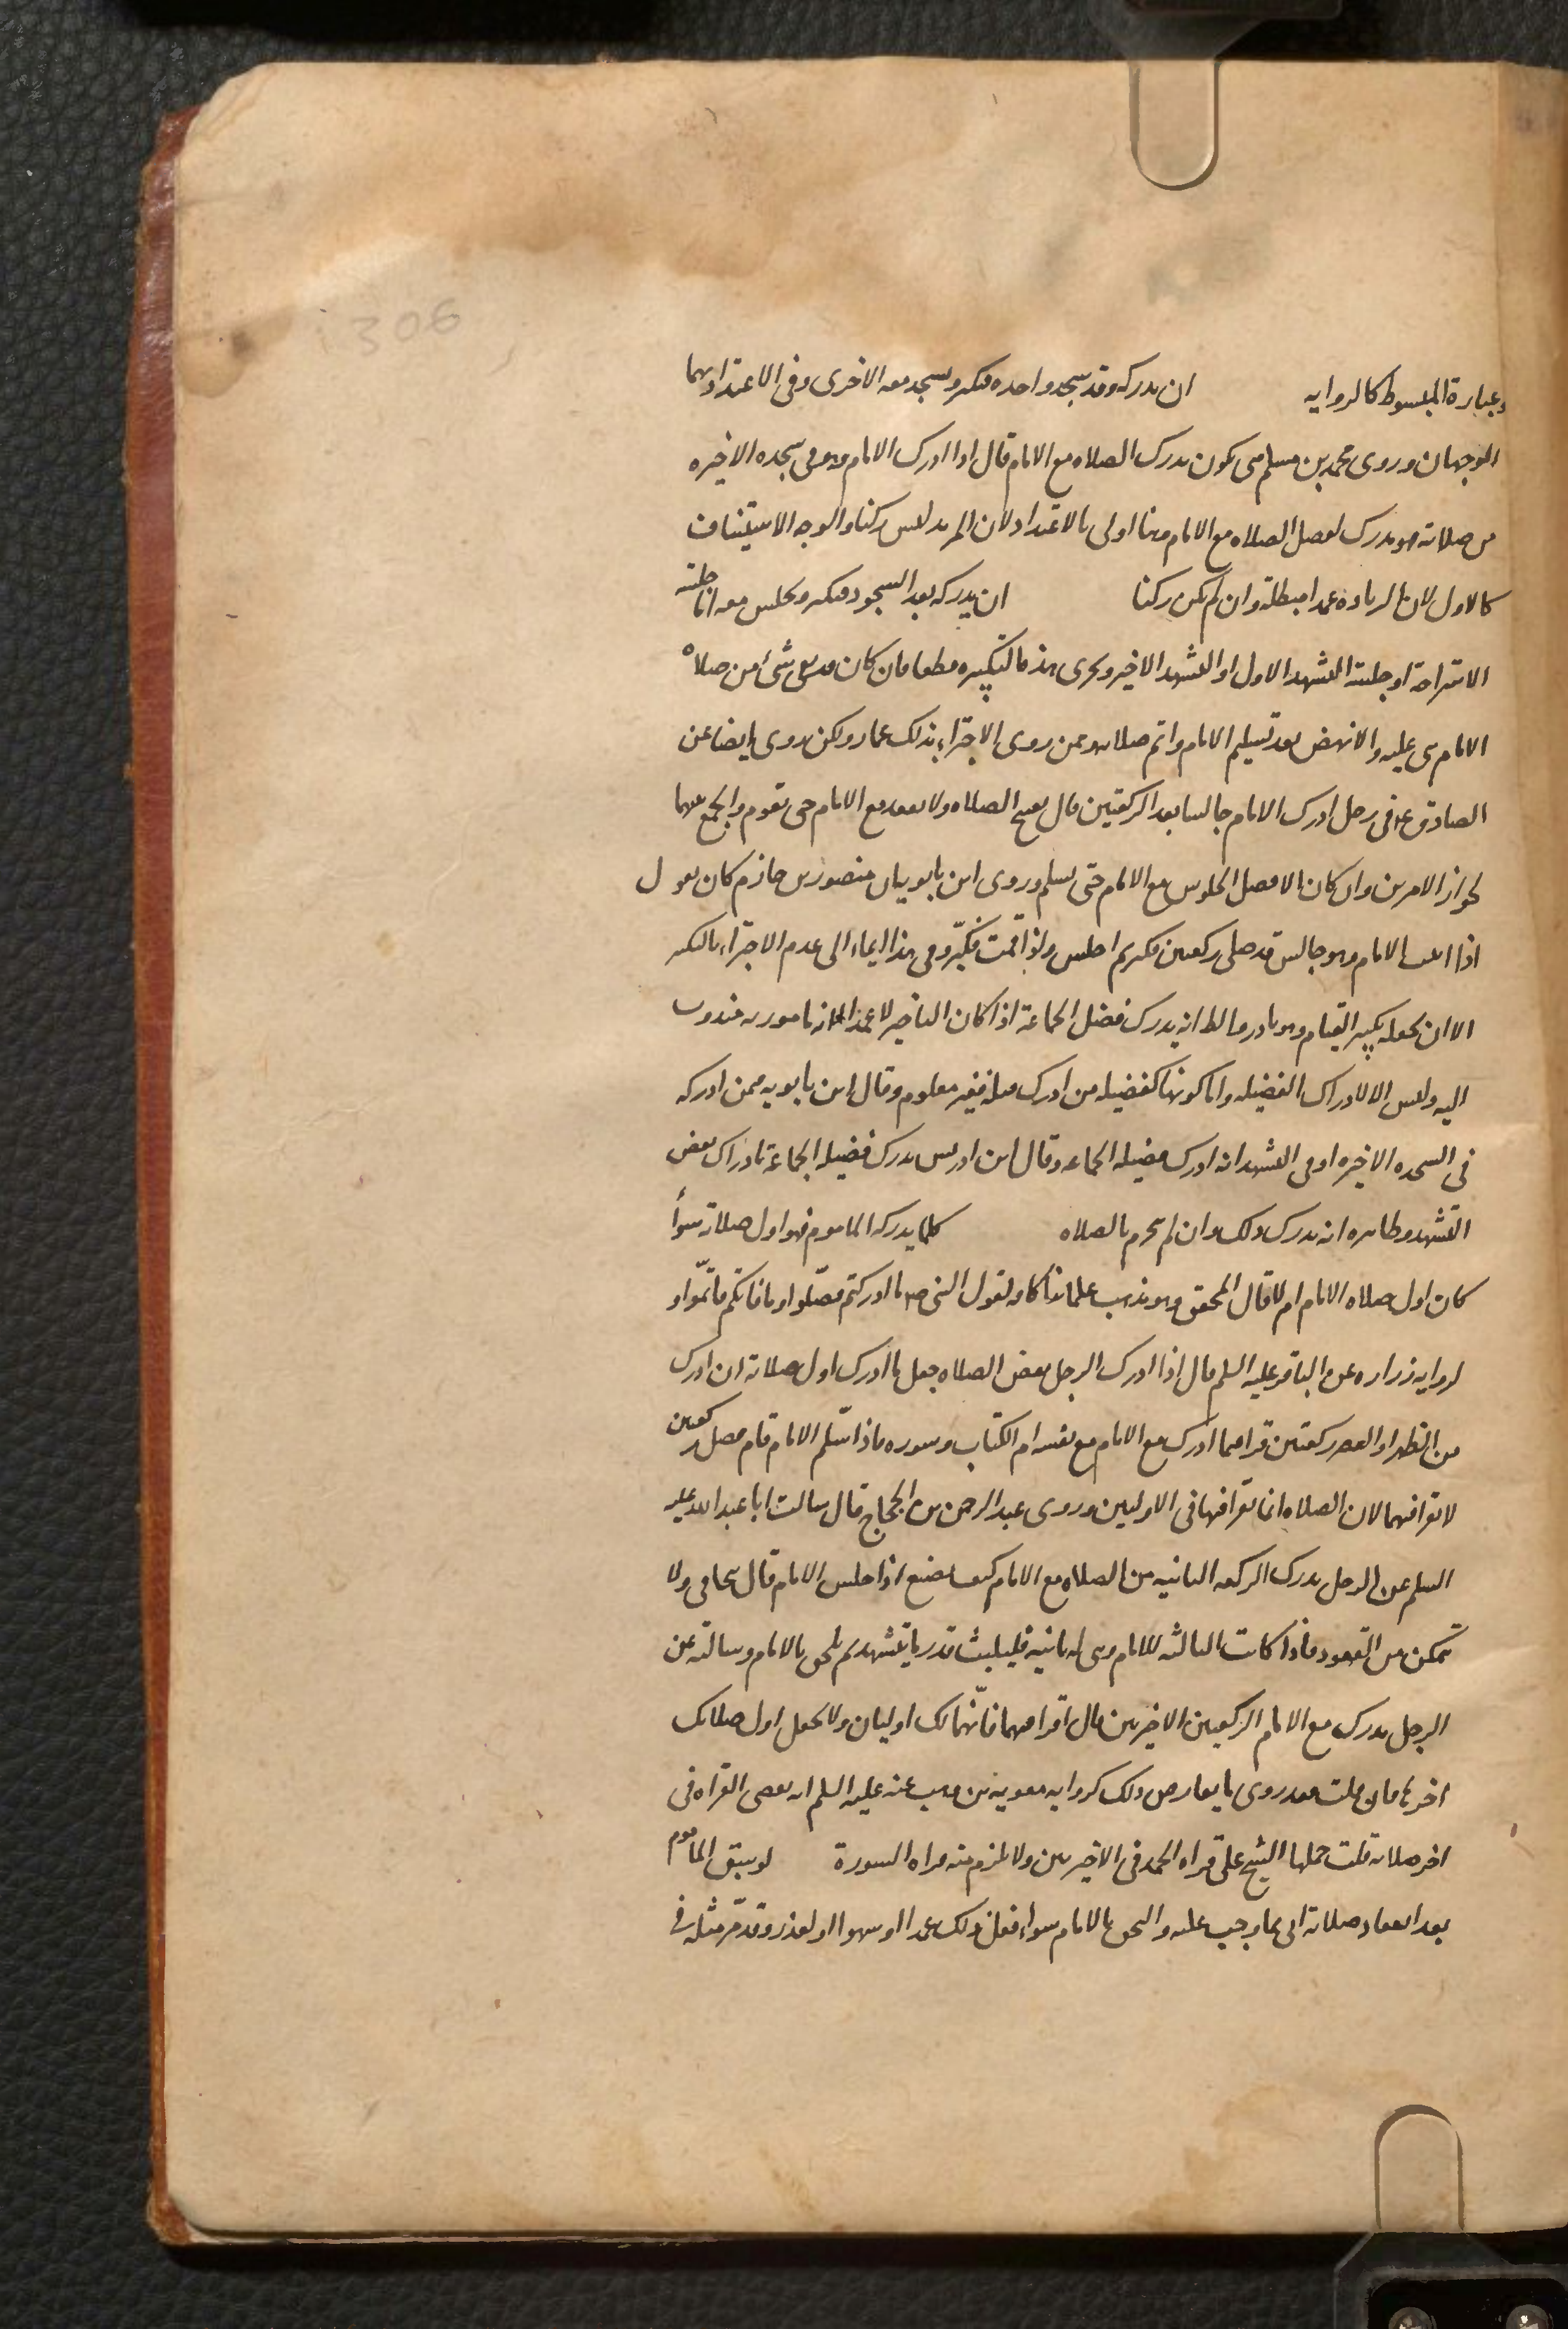 306
وعبارة المبسوط كالرواية ان يدركه وقد سجد واحده فيكبر ويسجد معه الاخرى وفى الاعتداد بهما
الوجهان وروى محمد بن مسلم متى يكون يدرك الصلاه مع الامام قال اذا ادرك الامام وهو فى سجده الاخيره
من صلاته فهو مدرك لفضل الصلاه مع الامام وهنا اولى بالاعتداد لان المزيد ليس ركنا والوجه الاستيناف
كالاول لان الزياده عمدا مبطلة وان لم يكن ركنا ان يدركه بعد السجود فيكبر ويجلس معه اما جلسة
الاستراحة او جلسة التشهد الاول او التشهد الاخير ويجزى هذه التكبيره قطعا فان كان قد بقى شئ من صلاه
الامام بنى عليه والا نهض بعد تسليم الامام واتم صلاته وممن روى الاجتزاء بذلك عمار ولكن روى ايضا عن
الصادق ع فى رجل ادرك الامام جالسا بعد الركعتين قال يفتح الصلاه ولا يقعد مع الامام حتى يقوم والجمع بينهما
بجواز الامرين وان كان الافضل الجلوس مع الامام حتى يسلم وروى ابن بابويه ان منصور بن حازم كان يقول
اذا اتيت الامام وهو جالس قد صلى ركعتين فكبر ثم اجلس واذا قمت فكبّر وفى هذا ايماء الى عدم الاجتزاء بالتكبير
الا ان يجعله تكبير القيام وهو نادر والظ انه يدرك فضل الجماعة اذا كان التاخير لا عمدا لانه مامور به مندوب
اليه وليس الا لادراك الفضيله واما كونها كفضيله من ادرك قبله فغير معلوم وقال ابن بابويه فيمن ادركه
فى السجده الاخيره او فى التشهد انه ادرك فضيله الجماعه وقال ابن ادريس يدرك فضيله الجماعة بادراك بعض
التشهد وظاهره انه يدرك ذلك وان لم يتحرم بالصلاه كلما يدركه الماموم فهو اول صلاته سوأ
كان اول صلاه الامام ام لا قال المحقق وهو مذهب علمائنا كافه لقول النبى ص ما ادركتم فصّلوا وما فاتكم فاتمّوا و
لروايه زراره عن الباقر عليه السلم قال اذا ادرك الرجل بعض الصلاه جعل ما ادرك اول صلاته ان ادرك
من الظهر او العصر ركعتين قرا فيما ادرك مع الامام مع نفسه ام الكتاب وسوره فاذا سّلم الامام قام فصلى ركعتين
لا يقرا فيهما لان الصلاه انما يقرا فيها فى الاوليين وروى عبد الرحمن بن الحجاج قال سالت ابا عبد الله عليه
السلم عن الرجل يدرك الركعه الثانيه من الصلاه مع الامام كيف يصنع اذا جلس الامام قال يتجافى ولا
يتمكن من القعود فاذا كانت الثالثه للامام وهى له ثانيه فليلبث قدر ما يتشهد ثم يلحق بالامام وسالته عن
الرجل يدرك مع الامام الركعتين الاخيرتين قال اقرا فيهما فانّهما لك اوليان ولا تجعل اول صلاتك
اخرها فان قلت فقد روى ما يعارض ذلك كروايه معويه بن وهب عنه عليه السلم انه يقضى القراه فى
اخر صلاته قلت حملها الشيخ على قراه الحمد فى الاخيرتين ولا يلزم منه قراه السورة لو سبق الماموم
بعد انعقاد صلاته اتى بما وجب عليه والتحق بالامام سواء فعل ذلك عمدا او سهوا او لعذر وقد مّر مثله فى